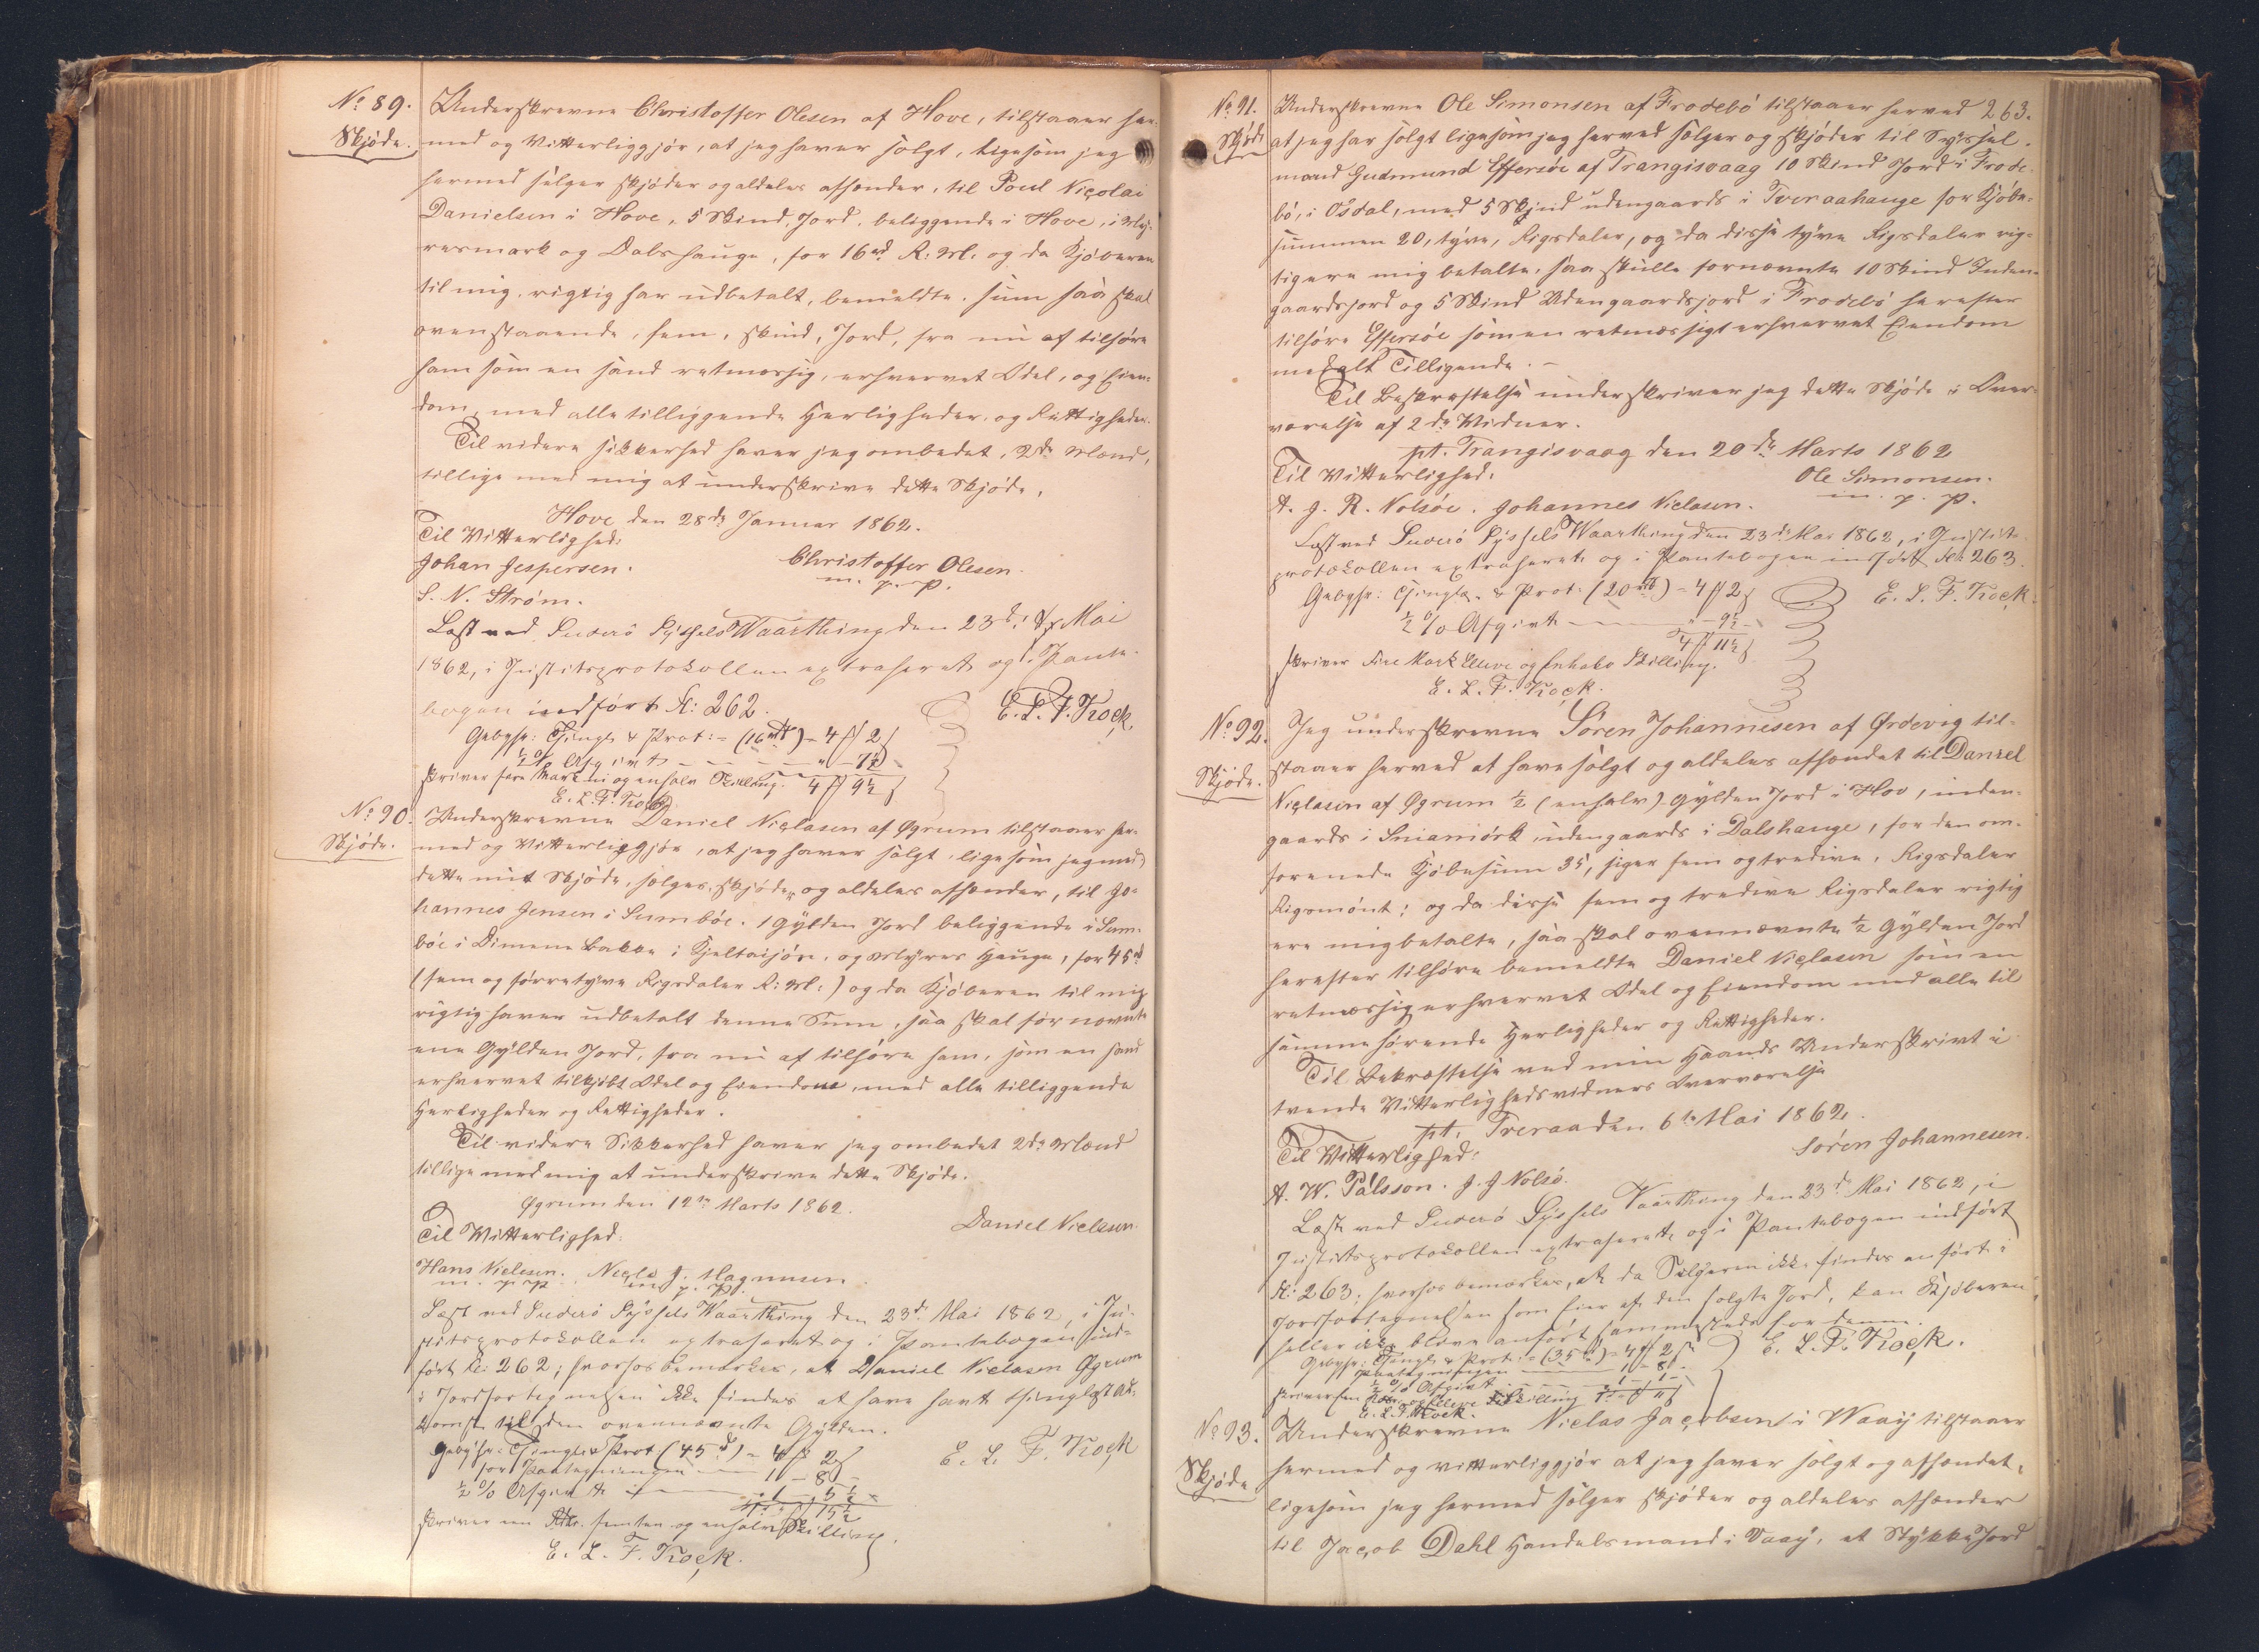 No 89.
Skjöde.
Underskrevne Christoffer Olesen af Hove, tilstaaer her-
med og Vitterliggjör, at jeg haver solgt, ligesom jeg
hermed sælger skjöder og aldeles afhænder, til Poul Niçolai
Danielsen i Hove, 5 Skind, Jord, beliggende i Hove, i My-
resmark og Dalshauge, for 16 rd R: M. og da Kjöberen
til mig rigtig har udbetalt, bemeldte Sum saa skal
ovenstaaende, fem, skind, Jord, fra nu af tilhöre
ham som en sand retmæssig, erhvervet Odel, og Eien-
dom, med alle tilliggende Herligheder og Rettigheder.
Til videre sikkerhed haver jeg ombedet, 2de Mænd,
tillige med mig at underskrive dette Skjöde.
Hove den 28de Januar 1862.
Til Vitterlighed:
Johan Jespersen.
Christoffer Olesen
m. p. p.
S. N. Ström.
Læst ved Suderö Syssels Vaarthing den 23d: Mai
1862, i Justitsprotokollen extraheret og i Pante-
bogen indfört fl: 262.
E. L. F. Kock
Gebyhr: Tingl. & Prot: - (16 rd) - 4 ß 2
½ % Afgivt - - - " - 7½ -
skriver fire Mark ni og en halv Skilling. 4 9½
E. L. F. Kock
No 90.
Skjöde.
Underskrevne Daniel Niçlasen af Øgrum tilstaaer her-
med og Vitterliggjör, at jeg haver solgt, ligesom jeg med
dette mit Skjöde, sælger, skjöder og aldeles afhænder, til Jo-
hannes Jensen i Sumböe. 1 Gylden Jord beliggende i Sum-
böe i Dimene Bakke i Kjeltaisjöre, og Myres Hauge, for 45 rd
(fem og förretyve Rigsdaler R: M:) og da Kjöberen til mig
rigtig haver udbetalt denne Sum, saa skal för nævnte
ene Gylden Jord, fra nu af tilhöre ham, som en sand
erhvervet tilkjöbt Odel og Eiendom, med alle tilliggende
Herligheder og Rettigheder.
Til videre Sikkerhed haver jeg ombedet 2de Mænd
tillige med mig at underskrive dette Skjöde.
Øgrum den 12te Marts 1862.
Til Vitterlighed:
Daniel Niclasen.
Hans Nielesen. Niçls J. Magnusen
m. p. p. m. p. p.
Læst ved Suderö Syssels Vaarthing den 23d Mai 1862, i Ju-
stitsprotokollen extraheret og i Pantebogen ind-
fört fl: 262; hvorhos bemærkes, at Daniel Niclasen Øgrum
i Jordfortegnelsen ikke findes at have havt thinglæst Ad-
komst til den ovennævnte Gylden.
Gebyhr: Tingl. & Prot. (45 rd) - 4 ß 2
for Paategningen - 1 - 8 -
½ % Afgivt - 1 - 5½ -
15½
skriver een Rdlr. femten og en halv Skilling.
E. L. F. Kock
E. L. F. Kock.
263.
No 91.
Skjöde
Underskrevne Ole Simonsen af Frodebö tilstaaer herved
at jeg har solgt ligesom jeg herved sælger og skjöder til Syssel-
mand Gudmund Effersöe af Trangisvaag 10 Skind Jord i Frode-
bö, i Ösdal, med 5 Skind udengaards i Tveraahauge for Kjöbe-
summen 20, tyve, Rigsdaler, og da disse tyve Rigsdaler rig-
tigere mig betalte, saa skulle fornævnte 10 Skind Inden-
gaardsjord og 5 Skind Udengaardsjord i Frodebö herefter
tilhöre Effersöe som en retmæssigt erhvervet Eiendom
med alt Tilligende. -
Til Bekræftelse underskriver jeg dette Skjöde i Over-
værelse af 2de Vidner.
pt. Trangisvaag den 20de Marts 1862
Til Vitterlighed:
Ole Simonsen.
m. p. p.
A. J. R. Nolsöe. Johannes Niclasen.
Læst ved Suderö Syssels Vaarthing den 23d: Mai 1862, i Justits-
protokollen extraheret og i Pantebogen indfört fl: 263.
Gebyhr: Tingl. & Prot: (20 rd) - 4 ß 2
E. L. F. Kock.
½ % Afgivt - " - 9½ -
4 ß 11½
skriver Fire Mark Elleve og Enhalv Skilling.
E. L. F. Kock.
No 92.
Skjöde.
Jeg underskrevne Sören Johannesen af Ørdevig til-
staaer herved at have solgt og aldeles afhændet til Daniel
Niçlasen af Øgrum ½ (en halv) Gylden Jord i Hov, inden-
gaards i Sniamörk, udengaards i Dalshauge, for den om-
forenede Kjöbesum 35, siger fem og tredive, Rigsdaler
Rigsmönt; og da disse fem og tredive Rigsdaler rigtig
ere mig betalte, saa skal ovennævnte ½ Gylden Jord
herefter tilhöre bemeldte Daniel Niçlasen som en
retmæssig erhvervet Odel og Eiendom med alle til
samme hörende Herligheder og Rettigheder.
Til Bekræftelse ved min Haands Underskrivt i
tvende Vitterlighedsvidners Overværelse
pt. Tveraa den 6te Mai 1862.
Til Vitterlighed:
Sören Johannesen.
A. W. Pálsson. J. J Nolsö.
Læst ved Suderö Syssels Vaarthing den 23d Mai 1862, i
Justitsprotokollen extraheret, og i Pantebogen indfört
fl: 263; hvorhos bemærkes, at da Sælgeren ikke findes anfört i
Jordfortegnelsen som Eier af den solgte Jord, kan Kjöberen
heller ikke blive anfört sammesteds for denne.
Gebyhr: Tingl. & Prot. - (35 rd) - 4 ß 2
E. L. F. Kock.
Paategningen - 1 - 8 -
½ % Afgivt - 1 - 1 -
E. L. F. Kock.
No 93.
Skjöde
Underskrevne Niclas Jacobsen i Waaÿ tilstaaer
hermed og vitterliggjör at jeg haver solgt og afhændet,
ligesom jeg hermed sælger skjöder og aldeles afhænder
til Jaçob Dahl Handelsmand i Vaaÿ, et Stykke Jord